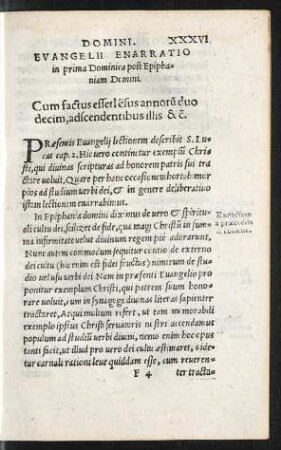 DOMINI. XXXVI.
EVANGELII ENARRATIO
in prima Dominica post Epipha-
niam Domini.
Cum factus esset Iesus annorũ duo
decim, adscendentibus illis &c̃.
PRaesentis Euangelij lectionem describit S. Lu-
cas cap. 2. Hic uero continetur exemplũ Chri-
sti, qui diuinas scripturas ad honorem patris sui tra
ctare uoluit. Quare per hanc occasionẽ adhortabimur
pios ad studium uerbi dei, & in genere deliberatiuo
istam lectionem enarrabimus.
In Epiphania domini diximus de uero & spiritu-
ali cultu dei, scilicet de fide, qua magi Christũ in sum
ma infirmitate uelut diuinum regem pie adorarunt.
Nunc autem commodum sequitur contio de exter no
dei cultu (hic enim est fidei fructus) nimirum de stu
dio uel usu uerbi dei Nam in praesenti Euangelio pro
ponitur exemplum Christi, qui patrem suum hono-
rare uoluit, cum in synagoga diuinas literas sapienter
tractaret, Atqui multum refert, ut tam memorabili
exemplo ipsius Christi seruatoris nostri accendamus
populum ad studiũ uerbi diuini, nemo enim hoc opus
tanti facit, ut illud pro uero dei cultu aestimaret, uide-
tur carnali rationi leue quiddam esse, cum reueren-
F 4 ter tracta-